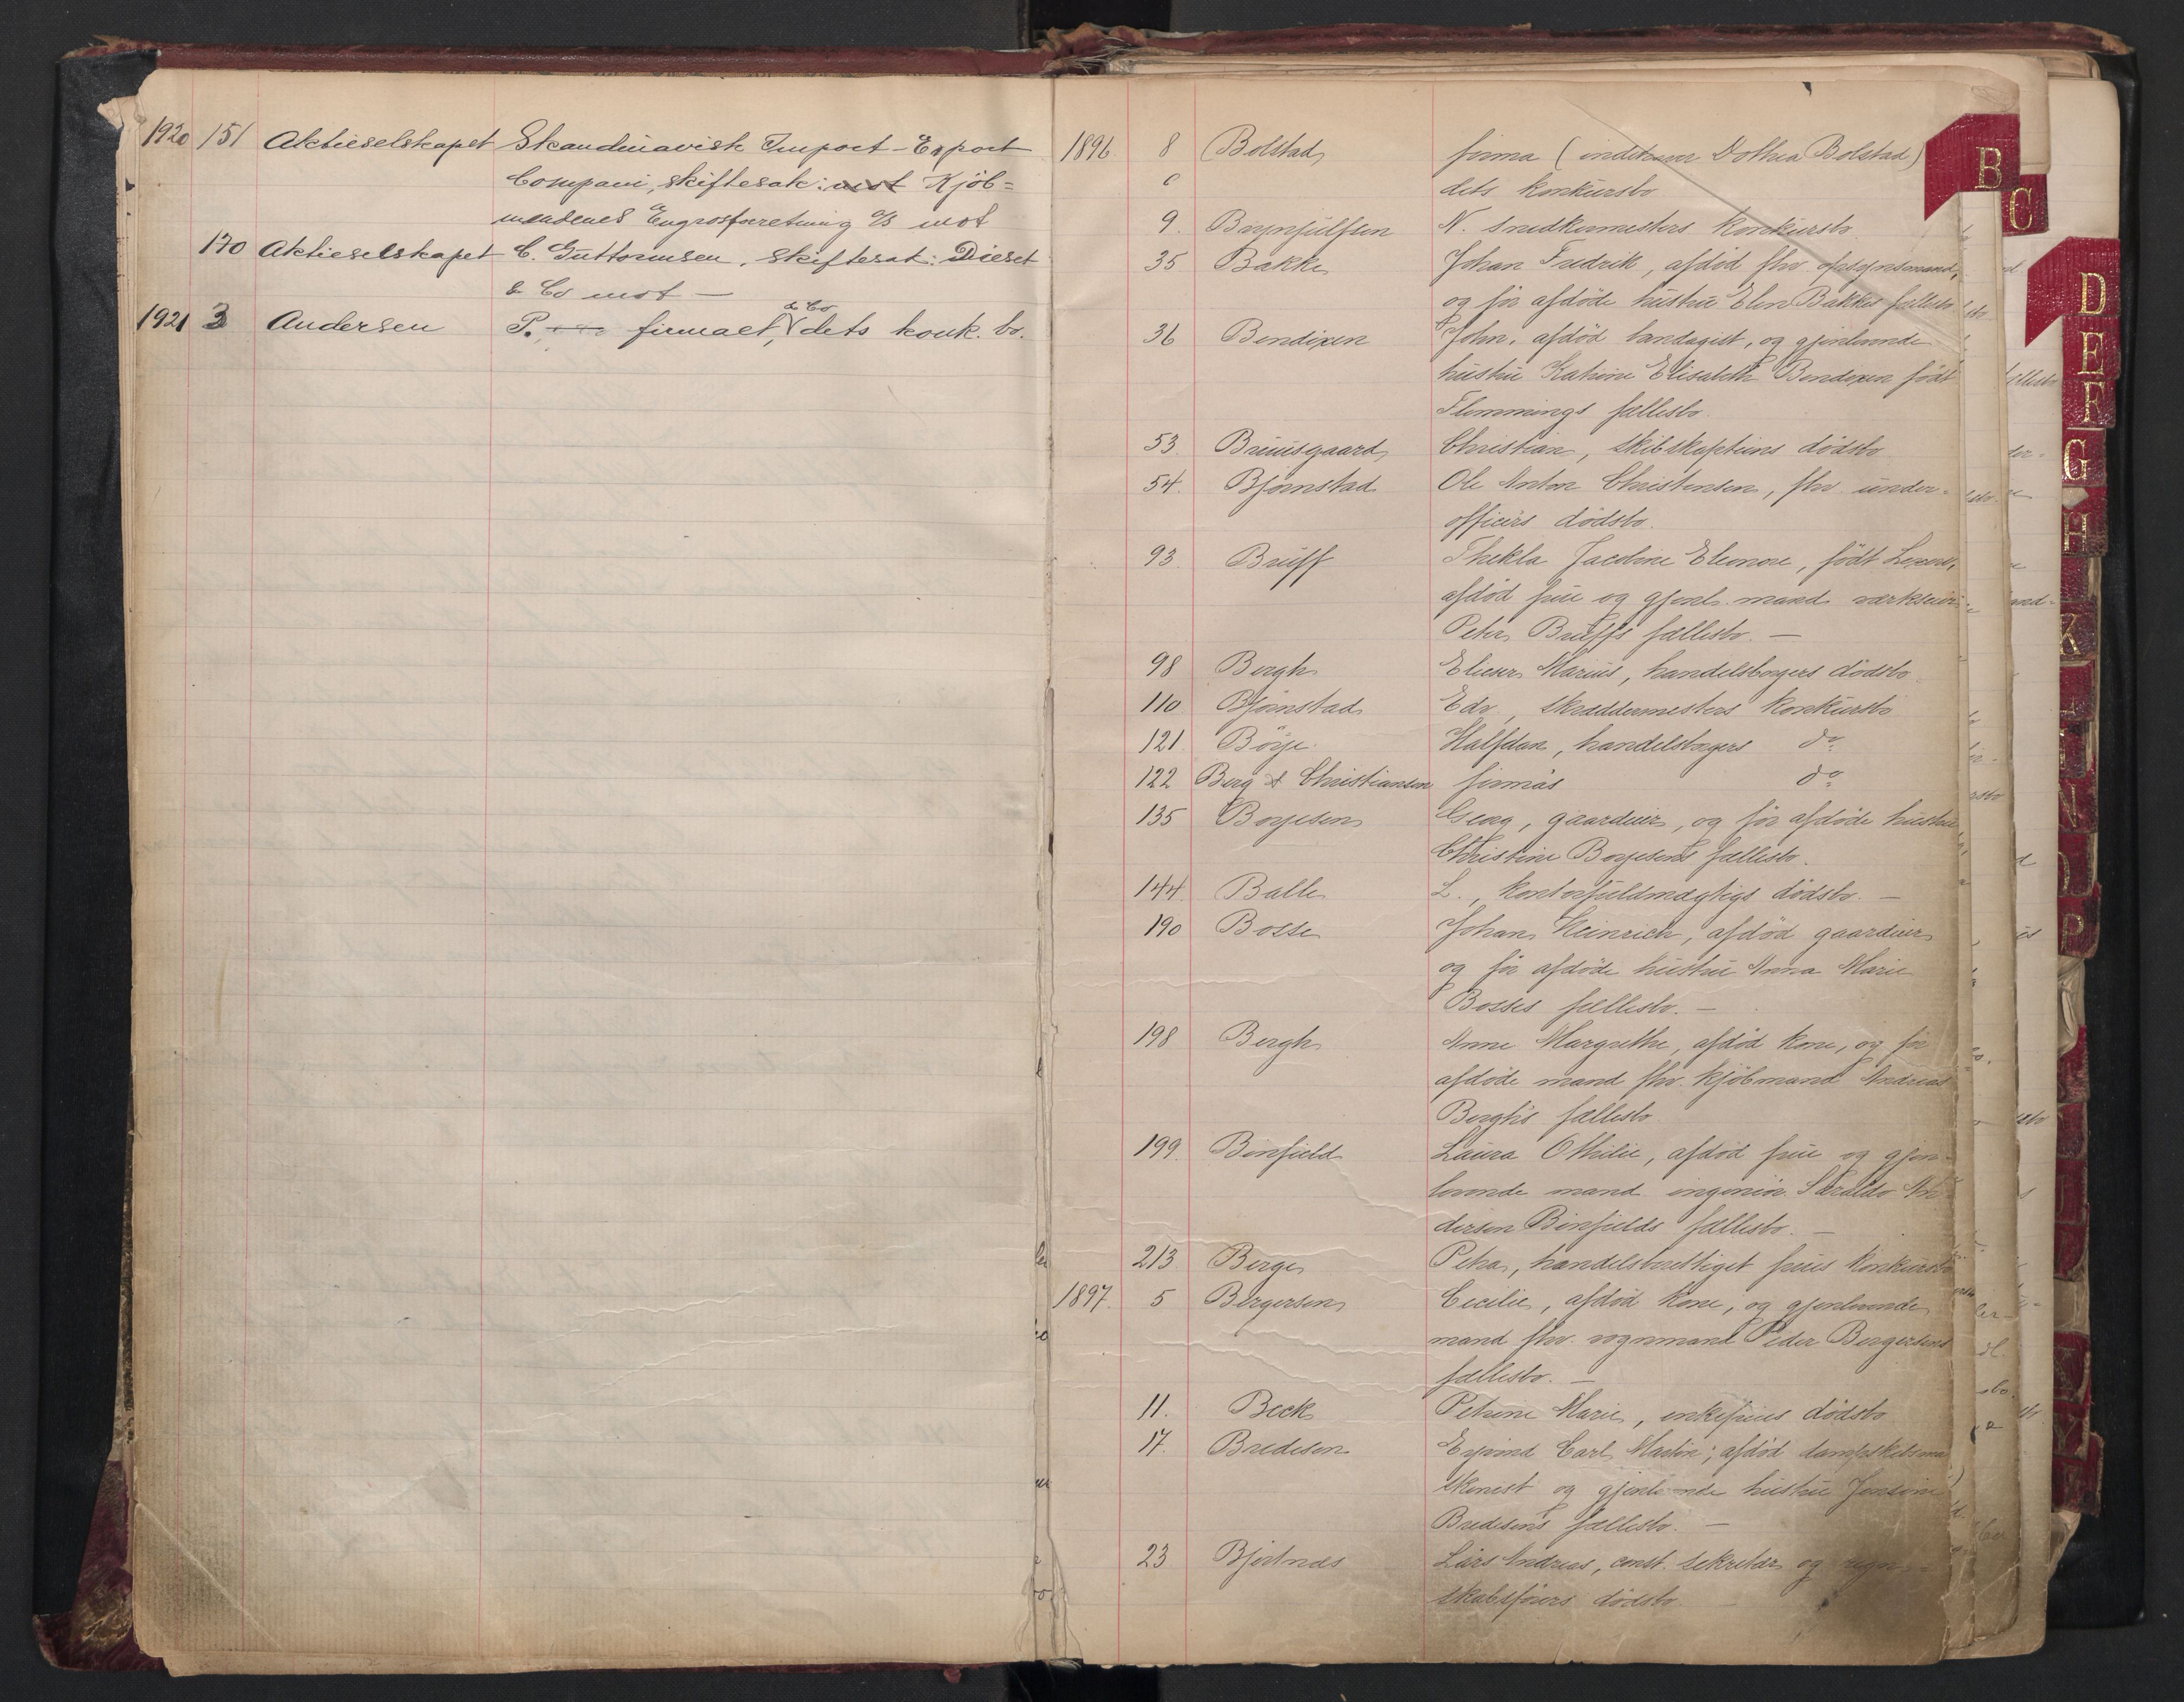 1920 151 Aktieselskapet Skandinavisk Import-Export
Compani, skiftesak: mot Kjöb=
mendenes Engrosforretning A/S mot
170 Aktieselskapet C. Guttormsen, skiftesak: Dieset
& Co mot —
1921 3 Andersen P. firmaet, & Co dets konk. bo.
1896 8 Bolstad, firma (indehaver Dothea Bolstad)
dets konkursbo
9. Brynjulfsen N. snedkermesters konkursbo
35 Bakke Johan Fredrik, afdöd fhv. opsynsmand,
og før afdöde hustru Elen Bakkes fællesbo
36 Bendixen John, afdöd bandagist, og gjenlevende
hustru Katrine Elisabeth Bendixen födt
Flemmings fællesbo.
53. Bruusgaard, Christian, skibskapteins dödsbo
54. Bjørnstad Ole Anton Christensen, fhv. under-
officers dödsbo.
93. Bruff Thekla Jacobine Eleonore, födt
afdöd frue og gjenl. mand værkseier
Peter Bruffs fællesbo. —
98 Bergh Elieser Marius, handelsborgers dödsbo
110 Bjørnstad Edv., skræddermesters konkursbo
121 Börje Halfdan, handelsborgers do
122 Berg & Christiansen firmas do
135 Borjesen Georg, gaardeier, og før afdöde hustru
Christine Borjesens fællesbo.
144. Balle L., kontorfuldmægtigs dödsbo. —
190 Bosse Johan Heinrich, afdöd gaardeier
og før afdöde hustru Anna Marie
Bosses fællesbo. —
198 Bergh Anne Margrethe, afdöd kone, og før
afdöde mand fhv. kjöbmand Andreas
Berghs fællesbo.
199. Binfield Laura Othilie, afdöd frue og gjen-
levende mand ingeniör An
dersen Binfields fællesbo. —
213. Berge Petra, handelsberettiget frues konkursbo
1897. 5 Bergersen Cecilie, afdöd kone, og gjenlevende
mand fhv. vognmand Peder Bergersens
fællesbo. —
11. Beck Petrine Marie, enkefrues dödsbo
17. Bredesen Eyvind Carl Martin, afdöd dampskibsma
skinist og gjenlevende hustru Jensine
Bredesens fællesbo. —
23 Bjertnæs Lars Andreas, const. sekretær og regn-
skabsførers dödsbo. —
B
C
D
E
F
G
H
K
N
P